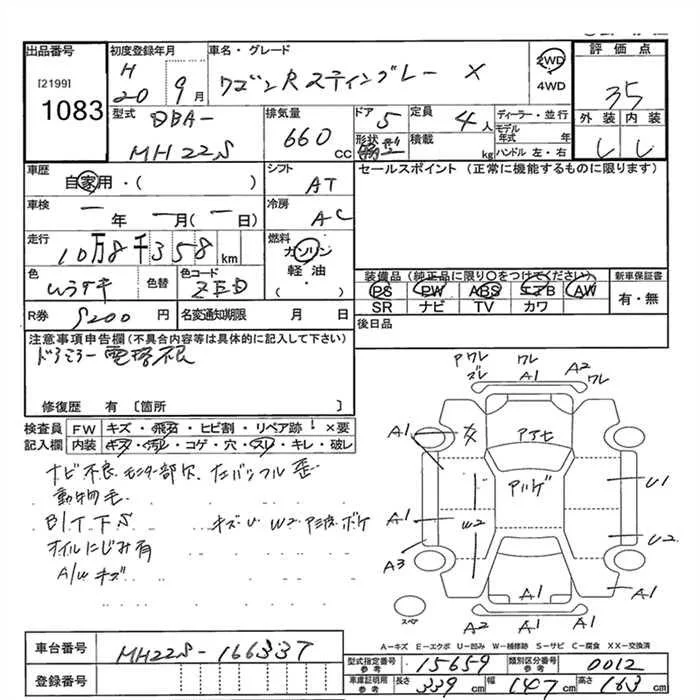 出品番号
[2199]
1083
初度登録年月
H
20 9月
車名・グレード
ワゴンR スティングレー X
2WD
4WD
評価点
35
外装 内装
型式 DBA-
MH22S
排気量
660 cc
ドア 5
形状
定員 4人
積載 kg
ディーラー・並行
モデル年式 年
ハンドル 左・右
車歴
自家用・( )
シフト
AT
セールスポイント (正常に機能するものに限ります)
車検
一年 一月(一日)
冷房
AC
走行
10万8千358km
燃料
ガソリン
軽油・
( )
色
ムラサキ
色替
色コード
ZED
装備品 (純正品に限り○をつけてください)
PS PW ABS エアB AW
SR ナビ TV カワ
新車保証書
有・無
R券 円
名変通知期限 月 日
後日品
注意事項申告欄 (不具合内容等は具体的に記入して下さい)
修復歴 有 〔箇所 〕
検査員
記入欄
FW キズ・飛石・ヒビ割・リペア跡 ×要
内装 キズ・汚れ・コゲ・穴・スレ・キレ・破レ
ナビ不良 モニター部欠
動物毛
オイルにじみ有
A/W キズ
ワレ ワレ A2
ズレ A1 ワレ
A1
A1
A3
W2
U1
U2
A1
A1
A1
スペア
A-キズ E-エクボ U-凹み W-補修跡 S-サビ C-腐食 XX-交換済
車台番号 MH22S-166337
登録番号
型式指定番号 参考 15659
類別区分番号 参考 0012
車庫証明用 参考 長さ 339cm 幅 147cm 高さ 163cm